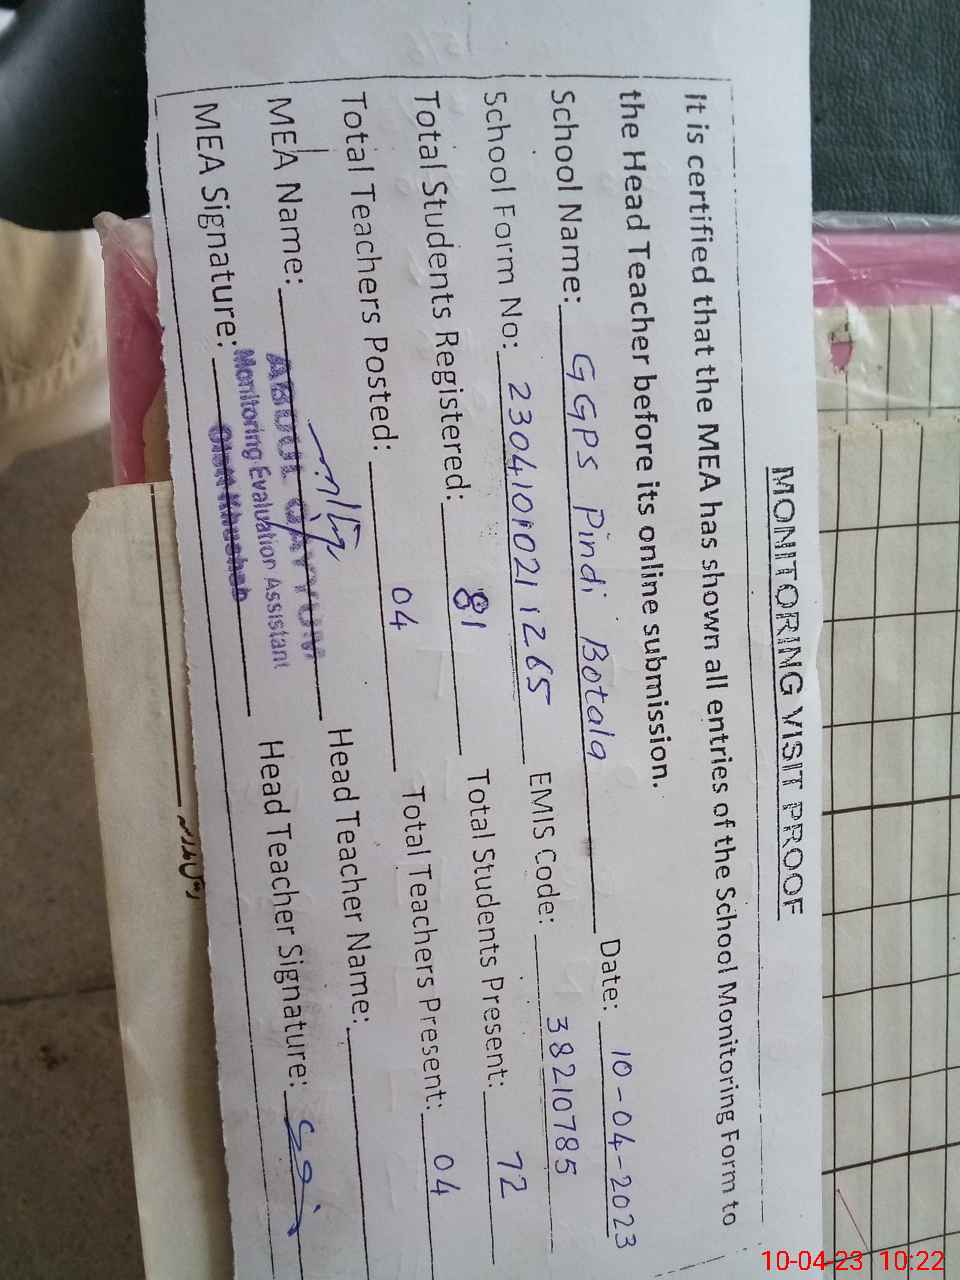 MONITORING VISIT PROOF
It is certified that the MEA has shown all entries of the School Monitoring Form to
the Head Teacher before its online submission.
School Name: GGPS Pindi Botala Date: 10-04-2023
School Form No: 23041010211265 EMIS Code: 38210785
Total Students Registered: 81 Total Students Present: 72
Total Teachers Posted: 04 Total Teachers Present: 04
MEA Name: ABDUL QAYYUM Head Teacher Name:
Monitoring Evaluation Assistant
MEA Signature: Distt Khushab Head Teacher Signature:
10-04-23 10:22